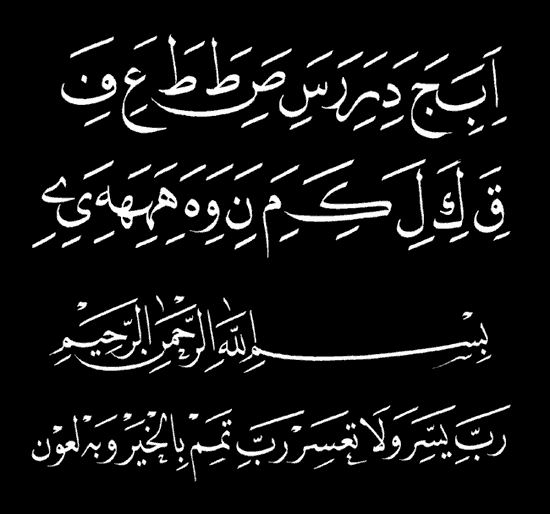 اَِ بَِ جَ دَِ رَِ رَ سَِ صَِ طَ طَ عَِ فَِ
قَِ كَِ لَِ کَِ مَِ نَِ وَِ هَ ىَِ ے
بِسْمِ اللّٰهِ الرَّحْمٰنِ الرَّحِيْمِ
رَبِّ يَسِّرْ وَلَا تُعَسِّرْ رَبِّ تَمِّمْ بِالْخَيْرِ وَبِهْ لعون